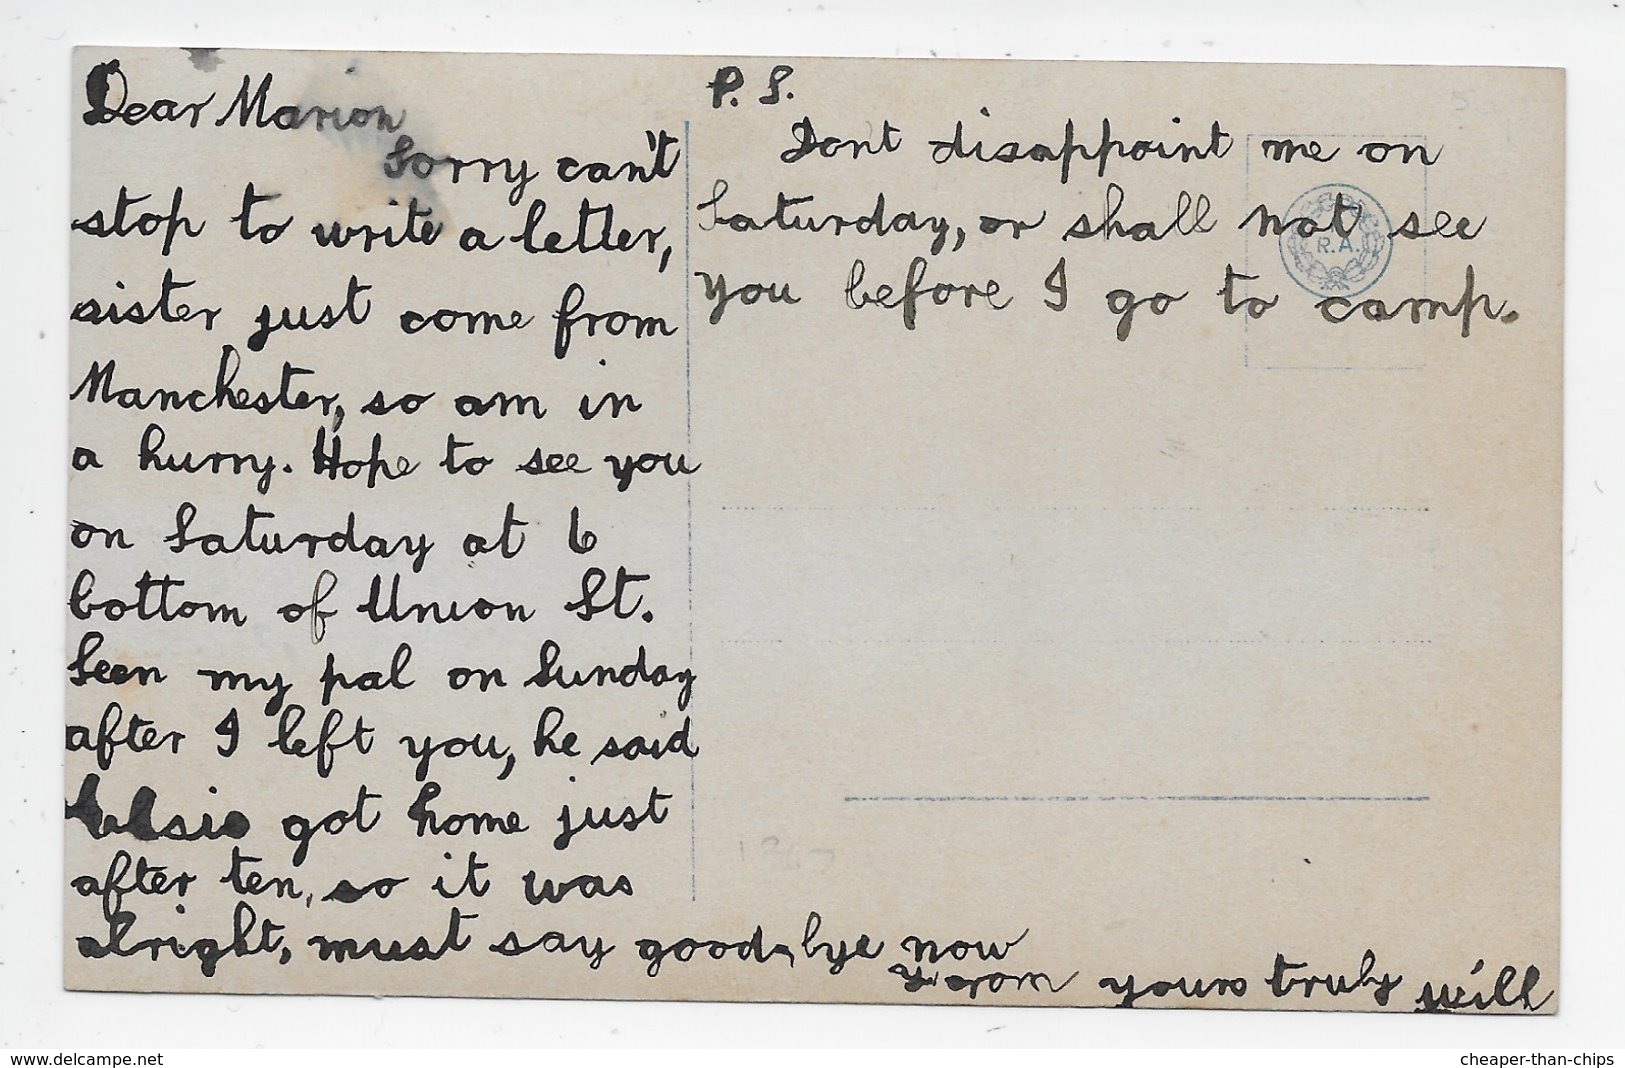 Dear Marion
Sorry can't
stop to write a letter,
sister just come from
Manchester, so am in
a hurry. Hope to see you
on Saturday at 6
bottom of Union St.
Seen my pal on Sunday
after I left you, he said
Elsie got home just
after ten, so it was
alright, must say good-bye now
From yours truly Will
P. S.
Dont disappoint me on
Saturday, or shall not see
you before I go to camp.
R.A.
www.delcampe.net
cheaper-than-chips